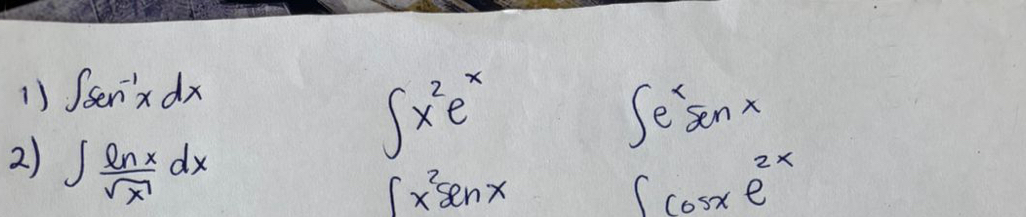 1) ∫sen⁻¹x dx
2) ∫ ln x/√x dx
∫x²eˣ
∫x²sen x
∫eˣsen x
∫cosx e²ˣ